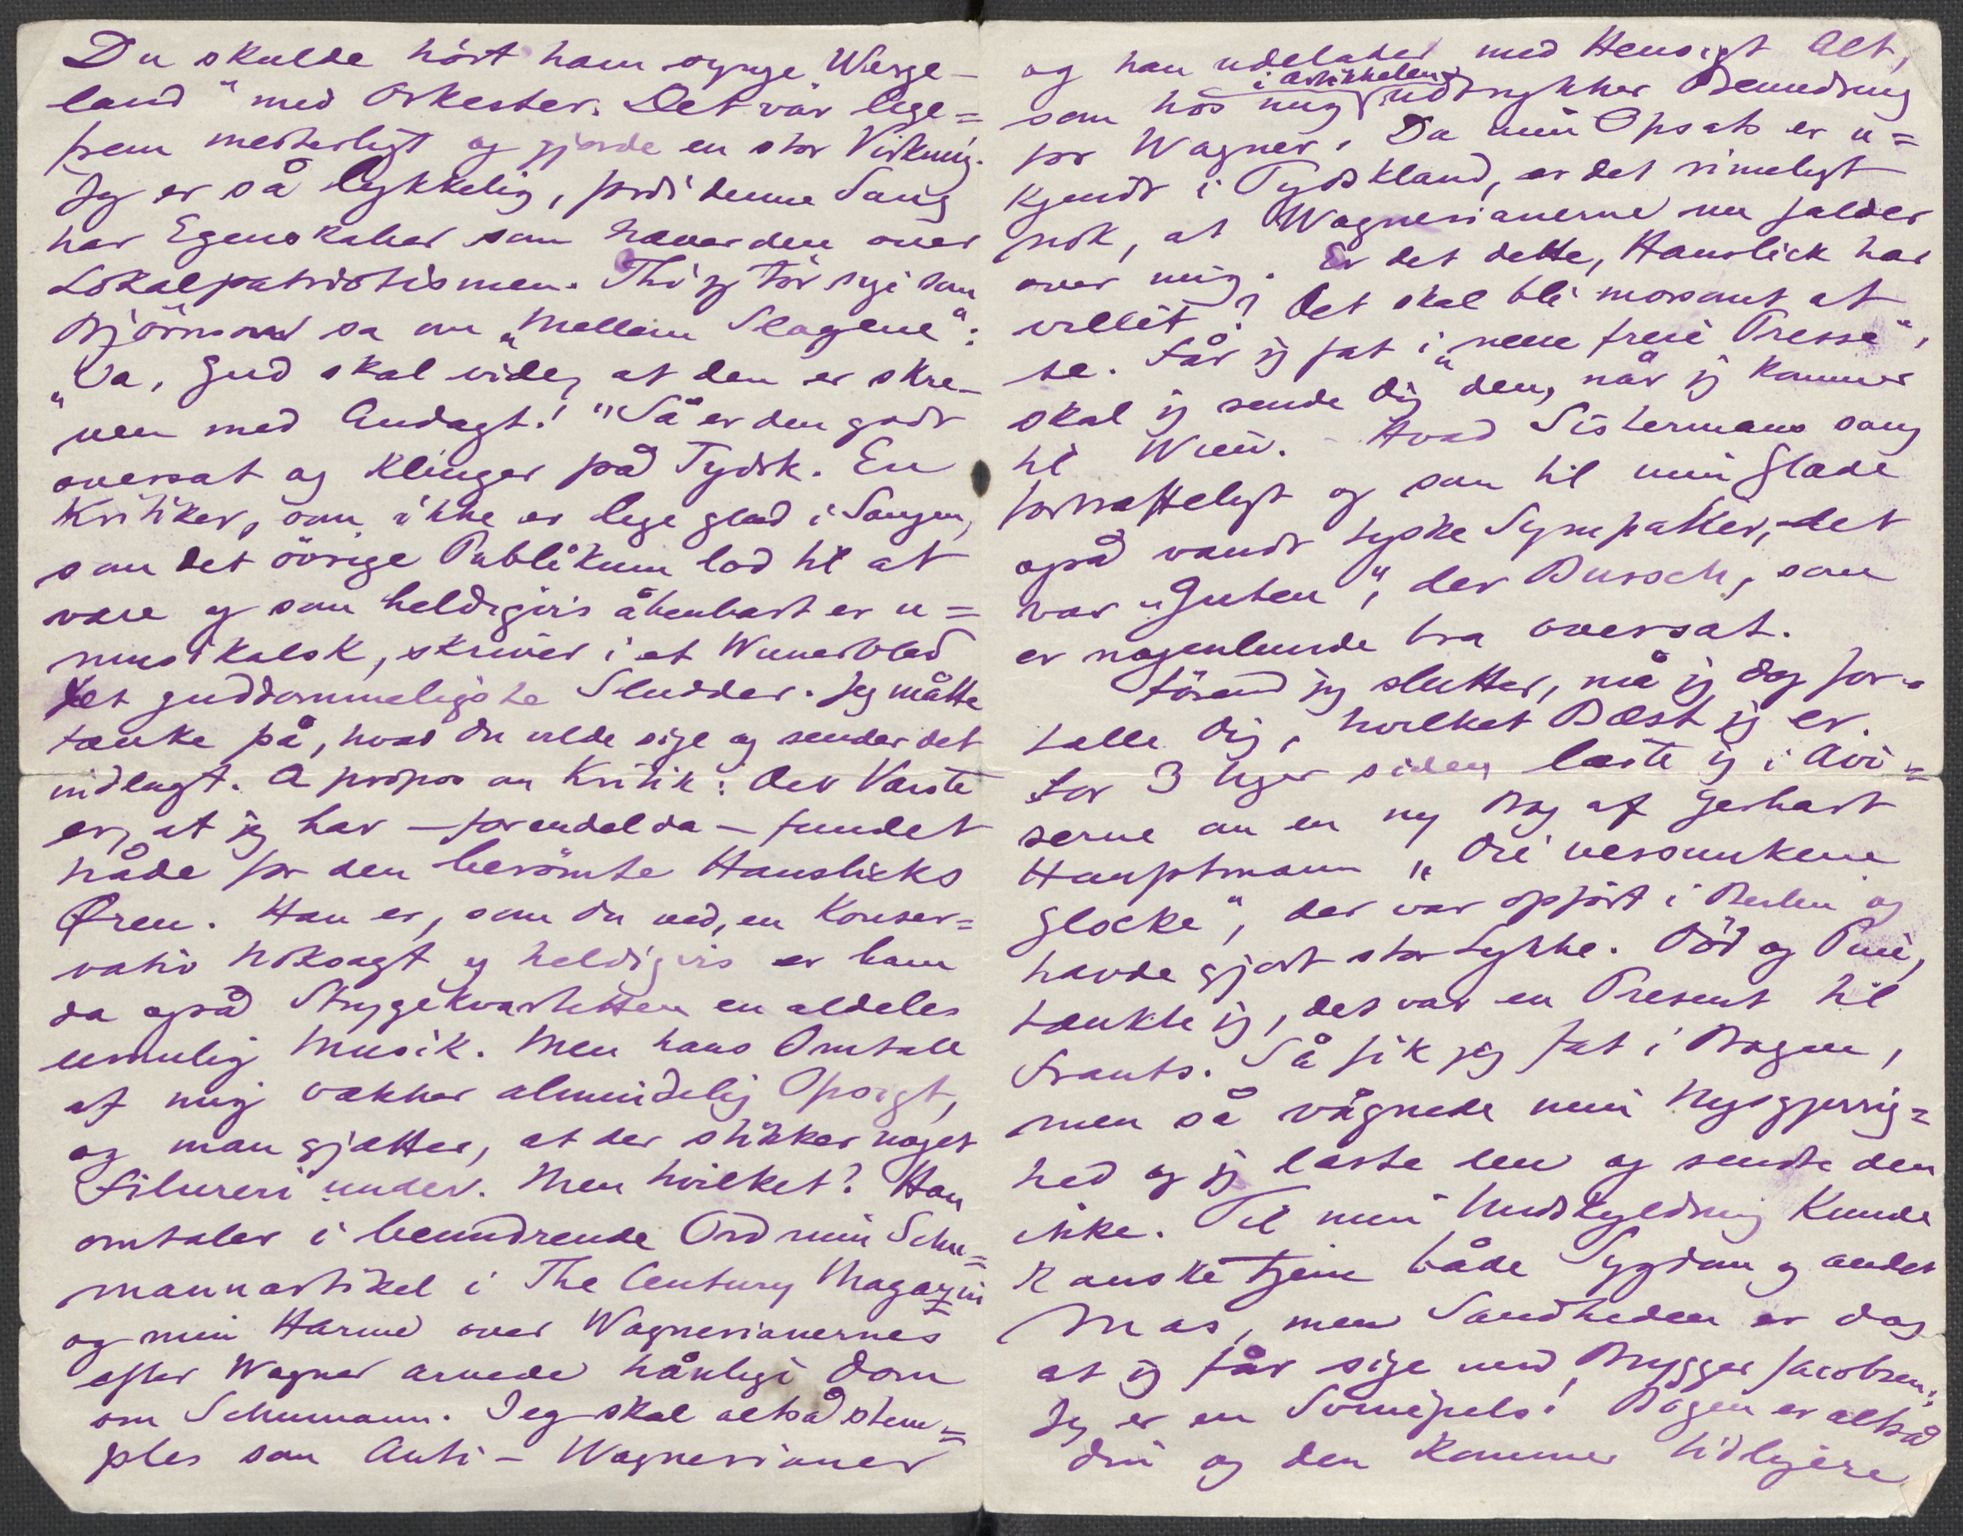 Du skulde hört ham synge „Werge-
land" med Orkester. Det var lige=
frem mesterligt og gjorde en stor Virkning.
Jeg er så lykkelig, fordi denne Sang
har Egenskaber som hæver den over
Lokalpatriotismen. Thi jeg tör sige som
Björnson sa om „Mellem Slagene":
„Ja, Gud skal vide, at den er skre-
ven med Andagt!" Så er den godt
oversat og klinger på Tydsk. En
Kritiker, som ikke er lige glad i Sangen,
som det övrige Publikum lod til at
være og som heldigvis åbenbart er u=
musikalsk, skriver i et Wienerblad
det guddommeligste Sludder. Jeg måtte
tænke på, hvad Du vilde sige og sender det
indlagt. A propos om Kritik: Det Værste
er, at jeg har – forendelda – fundet
nåde for den berömte Hanslicks
Øren. Han er, som Du ved, en Konser=
vativ noksagt og heldigvis er ham
da også Strygekvartetten en aldeles
umulig Musik. Men hans Omtale
af mig vækker almindelig Opsigt,
og man gjætter, at der stikker noget
Filureri under. Men hvilket? Han
omtaler i beundrende Ord min Schu=
mannartikel i The Century Magazin
og min Harme over Wagnerianernes
efter Wagner arvede hånlige Dom
om Schumann. Jeg skal altså stem=
ples som Anti-Wagnerianer
og han udelader med Hensigt Alt,
som hos mig i Artikkelen udtrykker Beundring
for Wagner. Da min Opsats er u=
kjendt i Tydskland, er det rimeligt
nok, at Wagnerianerne nu falder
over mig. Er det dette, Hanslick har
villet? Det skal bli morsomt at
se. Får jeg fat i „neue freie Presse",
skal jeg sende Dig den, når jeg kommer
til Wien. – Hvad Sistermans sang
fortræffeligt og som til min Glæde
også vandt tyske Sympatier, det
var „Guten", der Bursch, som
er nogenlunde bra oversat.
Förend jeg slutter, må jeg dog for-
tælle Dig, hvilket Bæst jeg er.
For 3 Uger siden læste jeg i Avi=
serne om en ny Bog af Gerhart
Hauptmann „Die versunkene
Glocke", der var opfört i Berlin og
havde gjort stor Lykke. Död og Pine,
tænkte jeg, det var en Present til
Frants. Så fik jeg fat i Bogen,
men så vågnede min Nysgjerrig=
hed og jeg læste den og sendte den
ikke. Til min Undskyldning kunde
kanske tjene både Sygdom og andet
Mas, men Sandheden er dog
at jeg får sige med Brygger Jacobsen:
Jeg er en Svinepels! Bogen er altså
din og den kommer tidligere